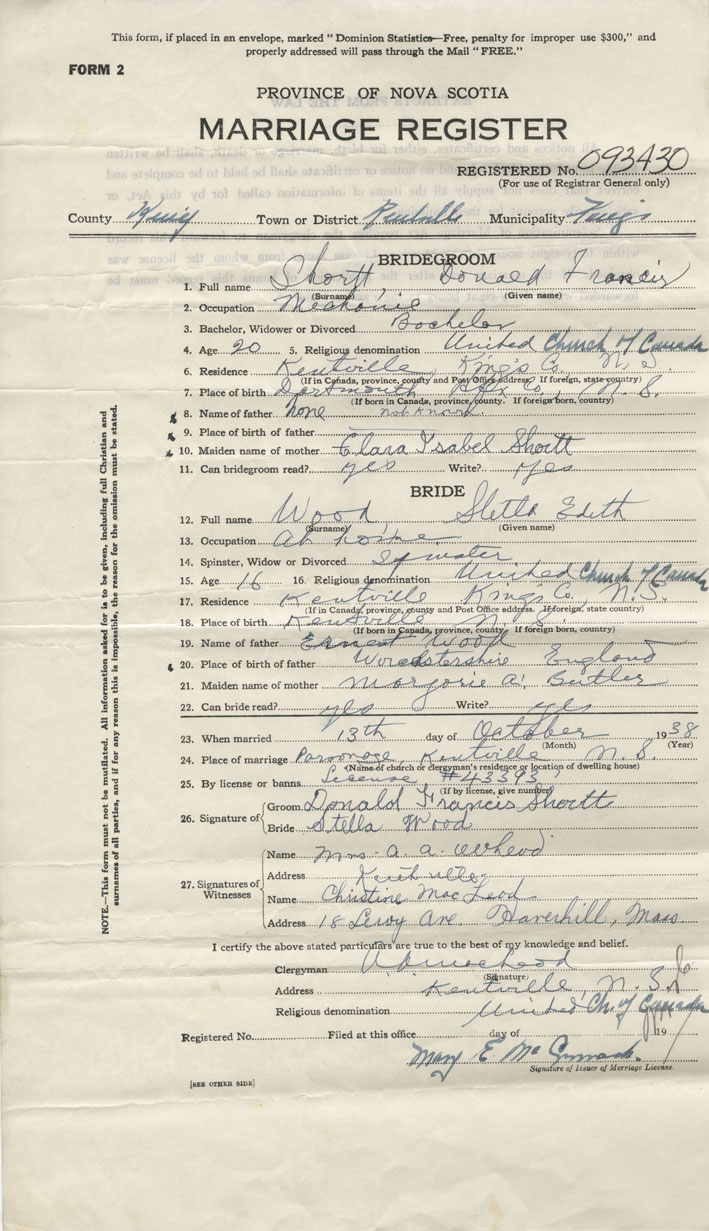 This form, if placed in an envelope, marked "Dominion Statistics—Free, penalty for improper use $300," and
properly addressed will pass through the Mail "FREE."
FORM 2
PROVINCE OF NOVA SCOTIA
MARRIAGE REGISTER
REGISTERED No. 093430
(For use of Registrar General only)
County Kings Town or District Kentville Municipality Kings
BRIDEGROOM
1. Full name Shortt, Donald Francis
(Surname) (Given name)
2. Occupation Mechanic
3. Bachelor, Widower or Divorced Bachelor
4. Age 20 5. Religious denomination United Church of Canada
6. Residence Kentville, King's Co. N.S.
(If in Canada, province, county and Post Office address. If foreign, state country)
7. Place of birth Dartmouth Hfx Co., N.S.
(If born in Canada, province, county. If foreign born, country)
8. Name of father none not known.
9. Place of birth of father
10. Maiden name of mother Clara Isabel Shortt
11. Can bridegroom read? yes Write? yes
BRIDE
12. Full name Wood Stella Edith
(Surname) (Given name)
13. Occupation At home
14. Spinster, Widow or Divorced Spinster
15. Age 16 16. Religious denomination United Church of Canada
17. Residence Kentville Kings Co., N.S.
(If in Canada, province, county and Post Office address. If foreign, state country)
18. Place of birth Kentville N.S.
(If born in Canada, province, county. If foreign born, country)
19. Name of father Ernest Wood
20. Place of birth of father England
21. Maiden name of mother Marjorie A. Butler
22. Can bride read? yes Write? yes
23. When married 13th day of October 1938
(Month) (Year)
24. Place of marriage Parsonage, Kentville N.S.
(Name of church or clergyman's residence or location of dwelling house)
25. By license or banns License #43393
(If by license, give number)
26. Signature of Groom Donald Francis Shortt
Bride Stella Wood
27. Signatures of Witnesses
Name Mrs. A. A.
Address Kentville
Name Christine MacLeod
Address 18 Leroy Ave. Haverhill, Mass
I certify the above stated particulars are true to the best of my knowledge and belief.
Clergyman
(Signature)
Address Kentville, N.S.
Religious denomination United Ch. of Canada
Registered No. Filed at this office day of 19
Mary E.
Signature of Issuer of Marriage License.
[SEE OTHER SIDE]
NOTE.—This form must not be mutilated. All information asked for is to be given, including full Christian and
surnames of all parties, and if for any reason this is impossible, the reason for the omission must be stated.